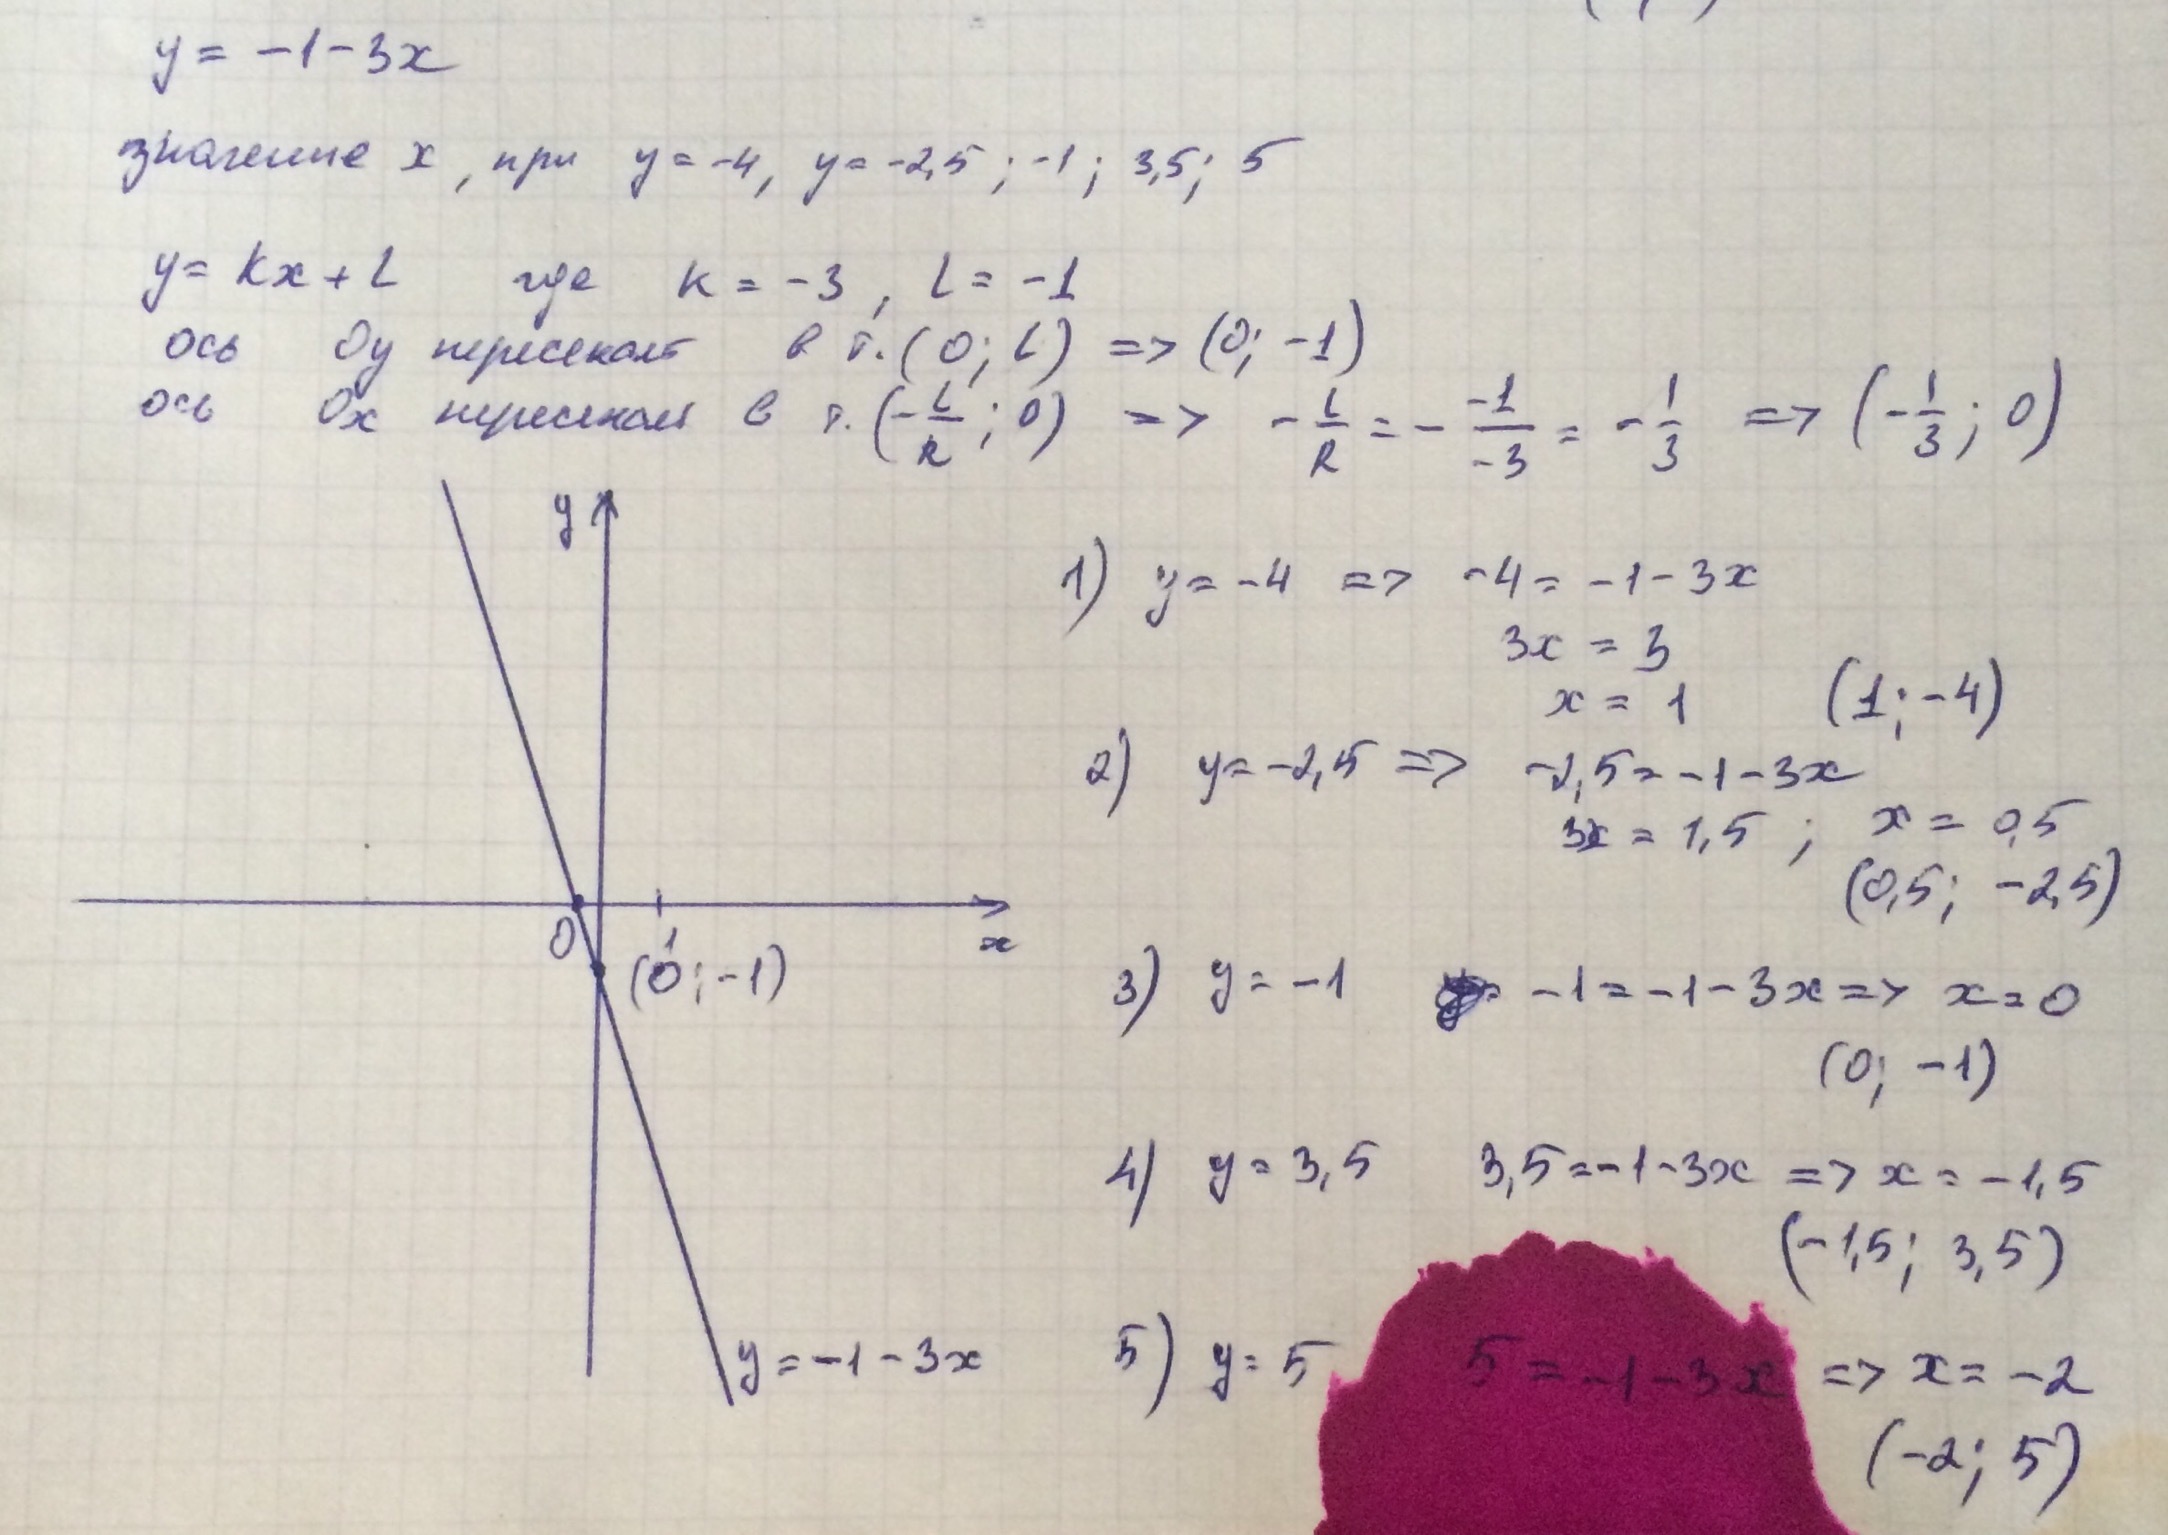 y = -1-3x
значение x, при y = -4, y = -2,5; -1; 3,5; 5
y = kx + l где k = -3, l = -1
ось Oy пересекает в т. (0; l) => (0; -1)
ось Ox пересекает в т. (-l/k; 0) => -l/k = - -1/-3 = -1/3 => (-1/3; 0)
y
0
1
x
(0; -1)
y = -1-3x
1) y = -4 => -4 = -1-3x
3x = 3
x = 1 (1; -4)
2) y = -2,5 => -2,5 = -1-3x
3x = 1,5; x = 0,5
(0,5; -2,5)
3) y = -1 -1 = -1-3x => x = 0
(0; -1)
4) y = 3,5 3,5 = -1-3x => x = -1,5
(-1,5; 3,5)
5) y = 5 5 = -1-3x => x = -2
(-2; 5)